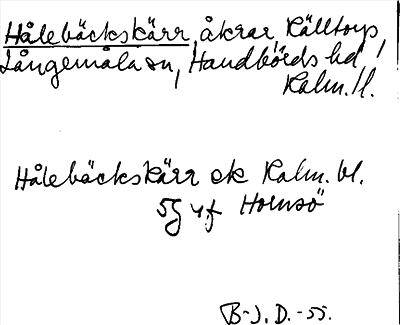 Hålebäckskärr, åkrar, Källtorp,
Långemåla sn, Handbörds hd,
Kalm. l.
Hålebäckskärr ek Kalm. bl.
5g 4f Hornsö
B-J. D. -55.